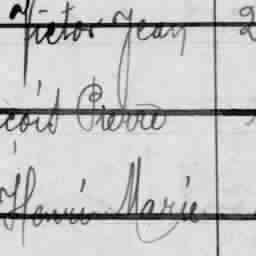 Victor Jean 2
çois Pierre
Henri Marie